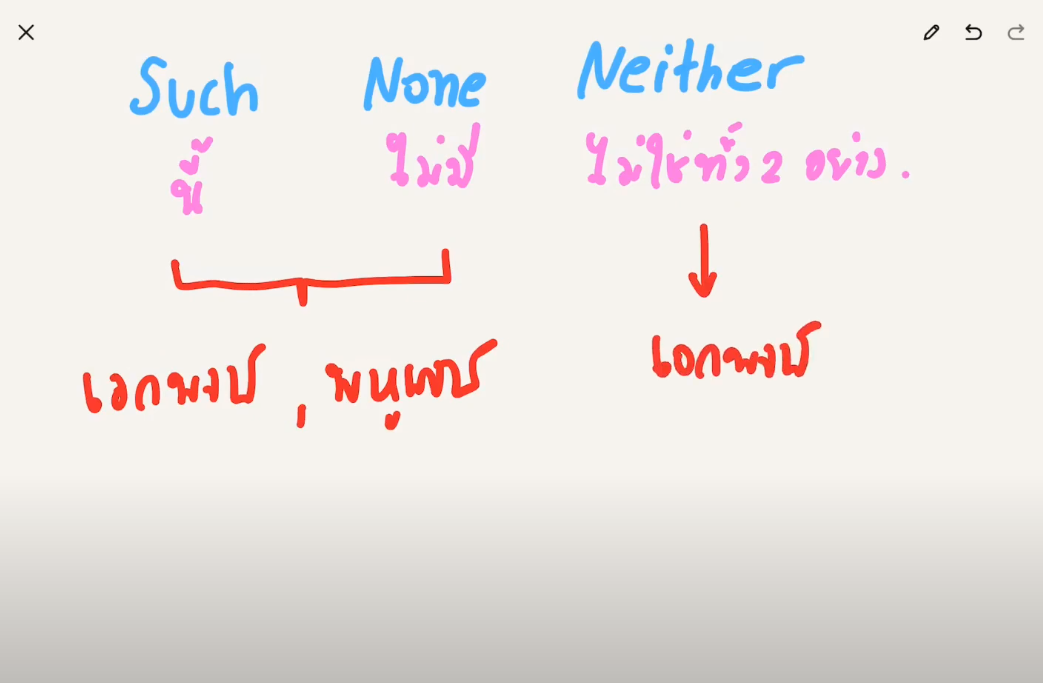 Such None Neither
นี้ ไม่มี ไม่ใช่ทั้ง 2 อย่าง.
เอกพจน์ , พหูพจน์ เอกพจน์